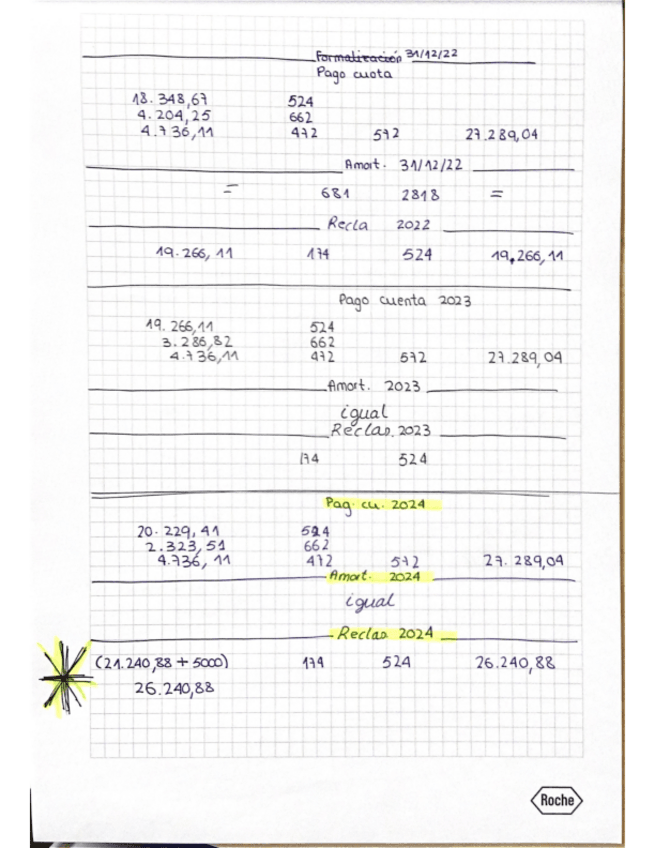 Formalización 31/12/22
Pago cuota
18.348,67 524
4.204,25 662
4.736,11 472 572 27.289,04
Amort. 31/12/22
= 681 2818 =
Recla 2022
19.266,11 174 524 19.266,11
Pago cuenta 2023
19.266,11 524
3.286,82 662
4.736,11 472 572 27.289,04
Amort. 2023
igual
Reclas. 2023
174 524
Pag. cu. 2024
20.229,41 524
2.323,51 662
4.736,11 472 572 27.289,04
Amort. 2024
igual
Reclas 2024
(21.240,88 + 5000) 174 524 26.240,88
26.240,88
Roche